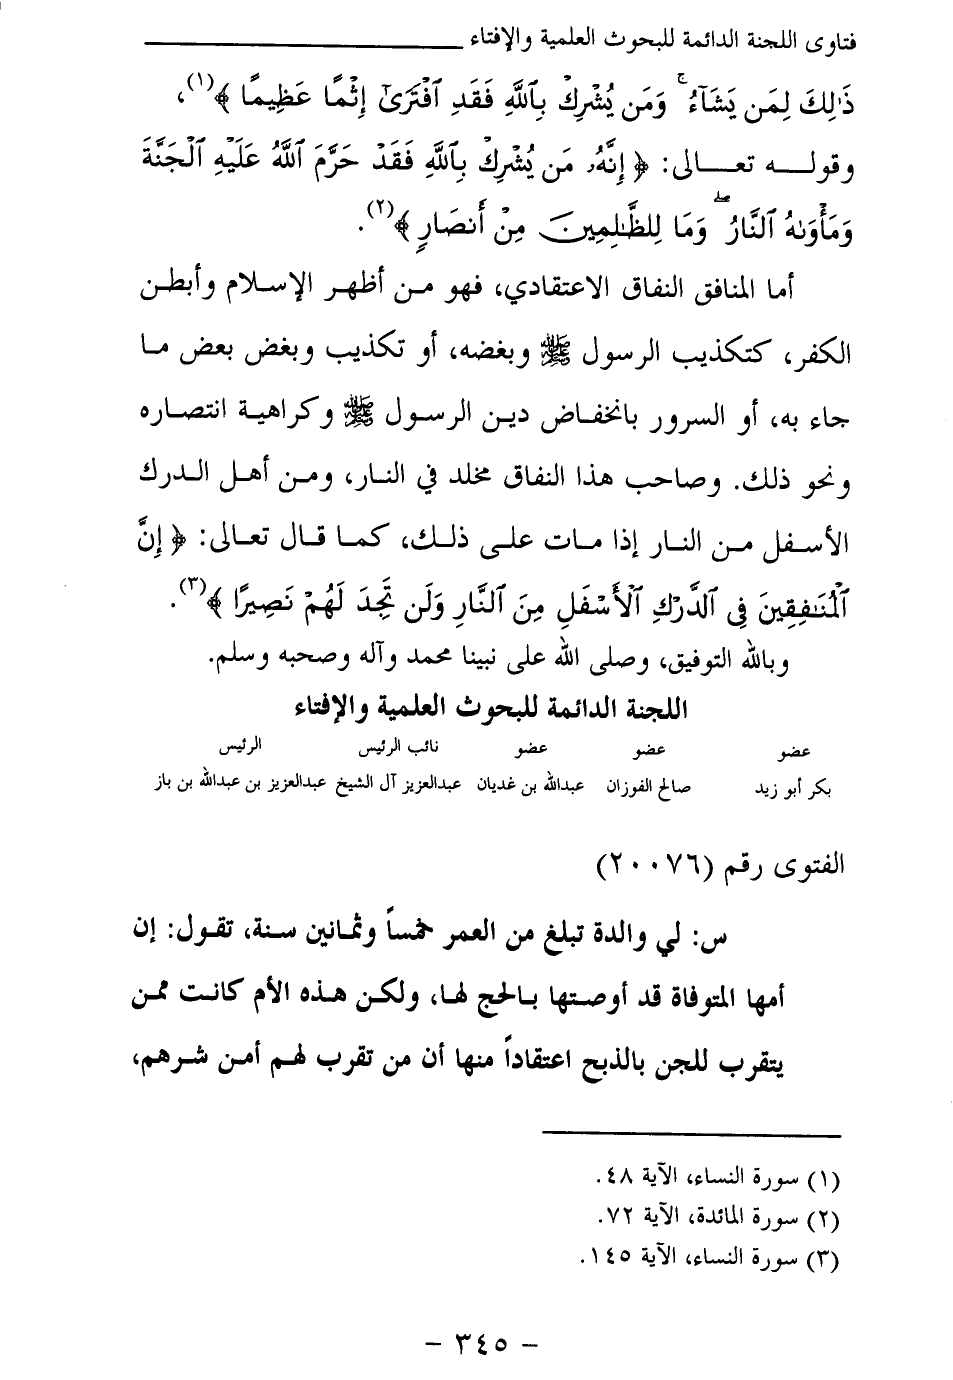 فتاوى اللجنة الدائمة للبحوث العلمية والإفتاء
ذَٰلِكَ لِمَن يَشَآءُ ۚ وَمَن يُشْرِكْ بِٱللَّهِ فَقَدِ ٱفْتَرَىٰٓ إِثْمًا عَظِيمًا ﴾(١)،
وقوله تعالى: ﴿ إِنَّهُۥ مَن يُشْرِكْ بِٱللَّهِ فَقَدْ حَرَّمَ ٱللَّهُ عَلَيْهِ ٱلْجَنَّةَ
وَمَأْوَىٰهُ ٱلنَّارُ ۖ وَمَا لِلظَّـٰلِمِينَ مِنْ أَنصَارٍ ﴾(٢).
أما المنافق النفاق الاعتقادي، فهو من أظهر الإسلام وأبطن
الكفر، كتكذيب الرسول ﷺ وبغضه، أو تكذيب وبغض بعض ما
جاء به، أو السرور بانخفاض دين الرسول ﷺ وكراهية انتصاره
ونحو ذلك. وصاحب هذا النفاق مخلد في النار، ومن أهل الدرك
الأسفل من النار إذا مات على ذلك، كما قال تعالى: ﴿ إِنَّ
ٱلْمُنَـٰفِقِينَ فِى ٱلدَّرْكِ ٱلْأَسْفَلِ مِنَ ٱلنَّارِ وَلَن تَجِدَ لَهُمْ نَصِيرًا ﴾(٣).
وبالله التوفيق، وصلى الله على نبينا محمد وآله وصحبه وسلم.
اللجنة الدائمة للبحوث العلمية والإفتاء
عضو عضو عضو نائب الرئيس الرئيس
بكر أبو زيد صالح الفوزان عبدالله بن غديان عبدالعزيز آل الشيخ عبدالعزيز بن عبدالله بن باز
الفتوى رقم (٢٠٠٧٦)
س: لي والدة تبلغ من العمر خمساً وثمانين سنة، تقول: إن
أمها المتوفاة قد أوصتها بالحج لها، ولكن هذه الأم كانت ممن
يتقرب للجن بالذبح اعتقاداً منها أن من تقرب لهم أمن شرهم،
(١) سورة النساء، الآية ٤٨.
(٢) سورة المائدة، الآية ٧٢.
(٣) سورة النساء، الآية ١٤٥.
- ٣٤٥ -